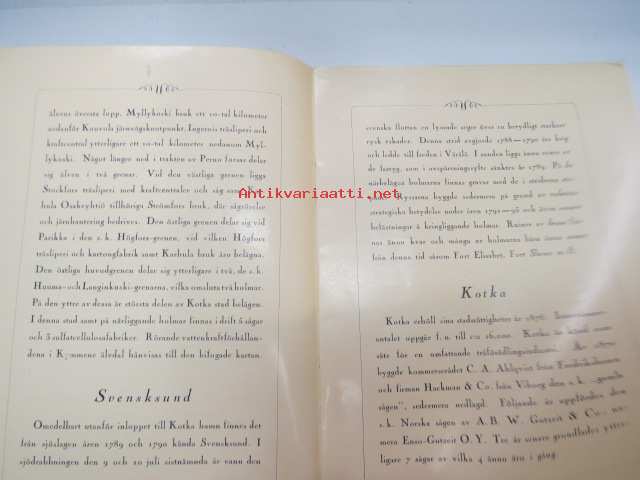 älvens översta lopp. Myllykoski bruk ett 10-tal kilometer
nedanför Kouvola järnvägsknutpunkt. Ingerois träsliperi och
kraftcentral ytterligare ett 10-tal kilometer nedanom Myl-
lykoski. Något längre ned i trakten av Perno forsar delar
sig älven i två grenar. Vid den västliga grenen ligga
Stockfors träsliperi med kraftcentraler och såg
hola Osakeyhtiö tillhöriga Strömfors bruk, där sågrörelse
och järnhantering bedrives. Den östliga grenen delar sig vid
Parikka i den s. k. Högfors-grenen, vid vilken Högfors
träsliperi och kartongfabrik samt Karhula bruk äro belägna.
Den östliga huvudgrenen delar sig ytterligare i två, de s. k.
Huuma- och Langinkoski-grenarna, vilka omsluta två holmar.
På den yttre av dessa är största delen av Kotka stad belägen.
I denna stad samt på närliggande holmar finnas i drift 5 sågar
och 3 sulfatcellulosafabriker. Rörande vattenkraftförhållan-
dena i Kymmene älvdal hänvisas till den bifogade kartan.
Svensksund
Omedelbart utanför inloppet till Kotka hamn finnes det
från sjöslagen åren 1789 och 1790 kända Svensksund. I
sjödrabbningen den 9 och 10 juli sistnämnda år vann den
svenska flottan en lysande seger över en betydligt starkare
rysk rival. Denna strid avgjorde 1788—1790 års krig
och ledde till freden i Värälä. I sunden ligga ännu
de fartyg, som i avspärrningssyfte sänktes år 1789. På de
närbelägna holmarna finnas gravar med de i striderna
Ryssarna byggde sedermera på grund av
strategiska betydelse under åren 1791—95 och
befästningar å kringliggande holmar. Ruiner av
finnas ännu kvar och många av holmarna bära
från denna tid såsom Fort Elisabet, Fort Slava m. fl.
Antikvariaatti.net
Kotka
Kotka erhöll sina stadsrättigheter år 1878.
antalet uppgår f. n. till c:a 16,000. Kotka är känd som
säte för en omfattande träförädlingsindustri. År
byggde kommerserådet C. A. Ahlqvist från Fredrikshamn
och firman Hackman & Co. från Viborg den s. k. „gamla
sågen”, sedermera nedlagd. Följande år uppfördes den
s. k. Norska sågen av A.B. W. Gutzeit & Co., nu-
mera Enso-Gutzeit O. Y. Tre år senare grundlades ytter-
ligare 7 sågar av vilka 4 ännu äro i gång.